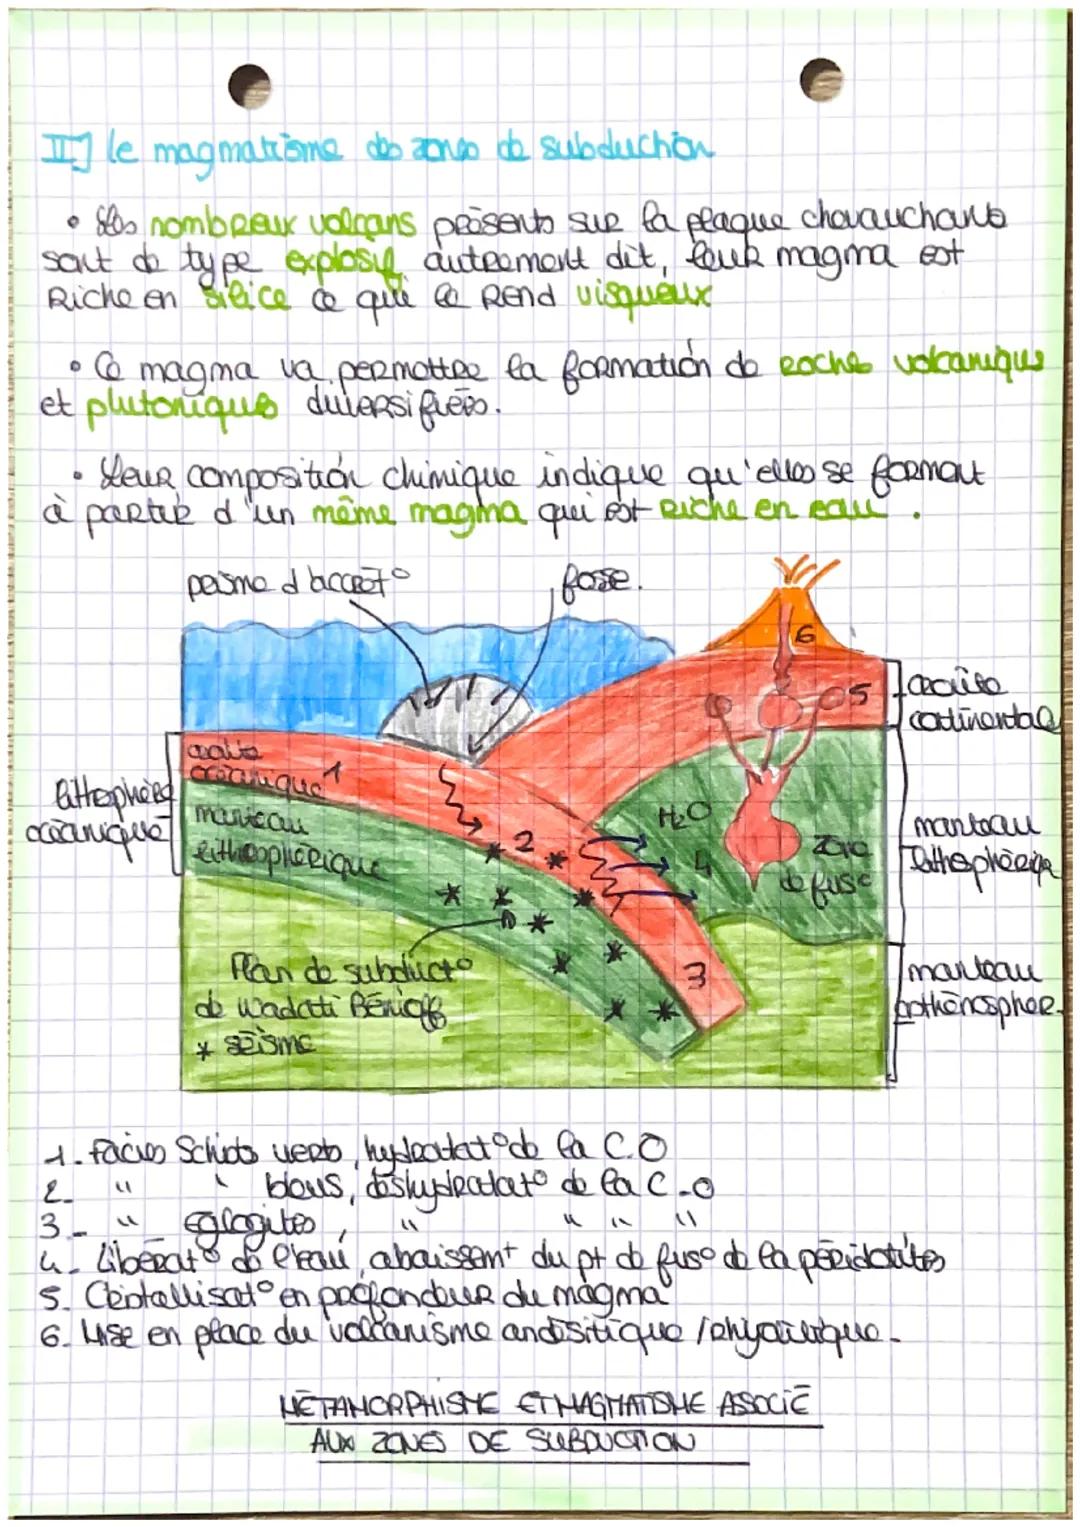 II] le magmatisme des zones de subduction
• Les nombreux volcans présents sur la plaque chevauchante
sont de type explosif, autrement dit, leur magma est
Riche en silice ce qui le rend visqueux
• Ce magma va permettre la formation de roches volcaniques
et plutoniques diversifiées.
• Leur composition chimique indique qu'elles se forment
à partir d'un même magma qui est riche en eau.
prisme d'accret°
fosse.
6
5
croûte
continentale
croûte
océanique 1
lithosphère
océanique
manteau
lithosphérique
2
H₂O
4
Zone
de fus°
manteau
lithosphériq
Plan de subduct°
de Wadati Bénioff
* séisme
3
manteau
asthénosphér.
1. Faciès Schists verts, hydratat° de la C.O
2. " " bleus, déshydratat° de la C.O
3. " Eglogites, " " " "
4. Libérat° de l'eau, abaissemt du pt de fus° de la péridotites
5. Cristallisat° en profondeur du magma
6. Mise en place du volcanisme andésitique / rhyolitique.
MÉTAMORPHISME ET MAGMATISME ASSOCIÉ
AUX ZONES DE SUBDUCTION